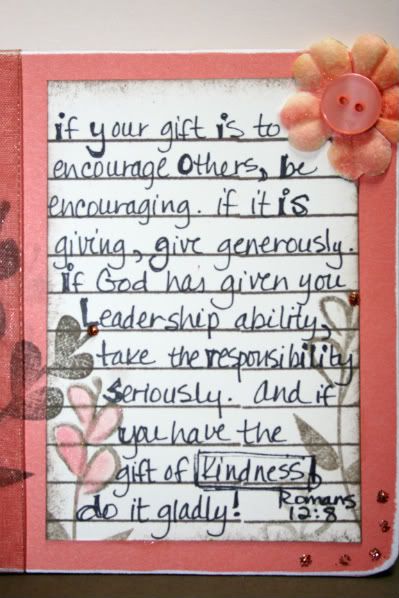 if your gift is to
encourage Others, be
encouraging. if it is
giving, give generously.
if God has given you
Leadership ability,
take the responsibility
Seriously. and if
you have the
gift of Kindness,
do it gladly!
Romans
12:8